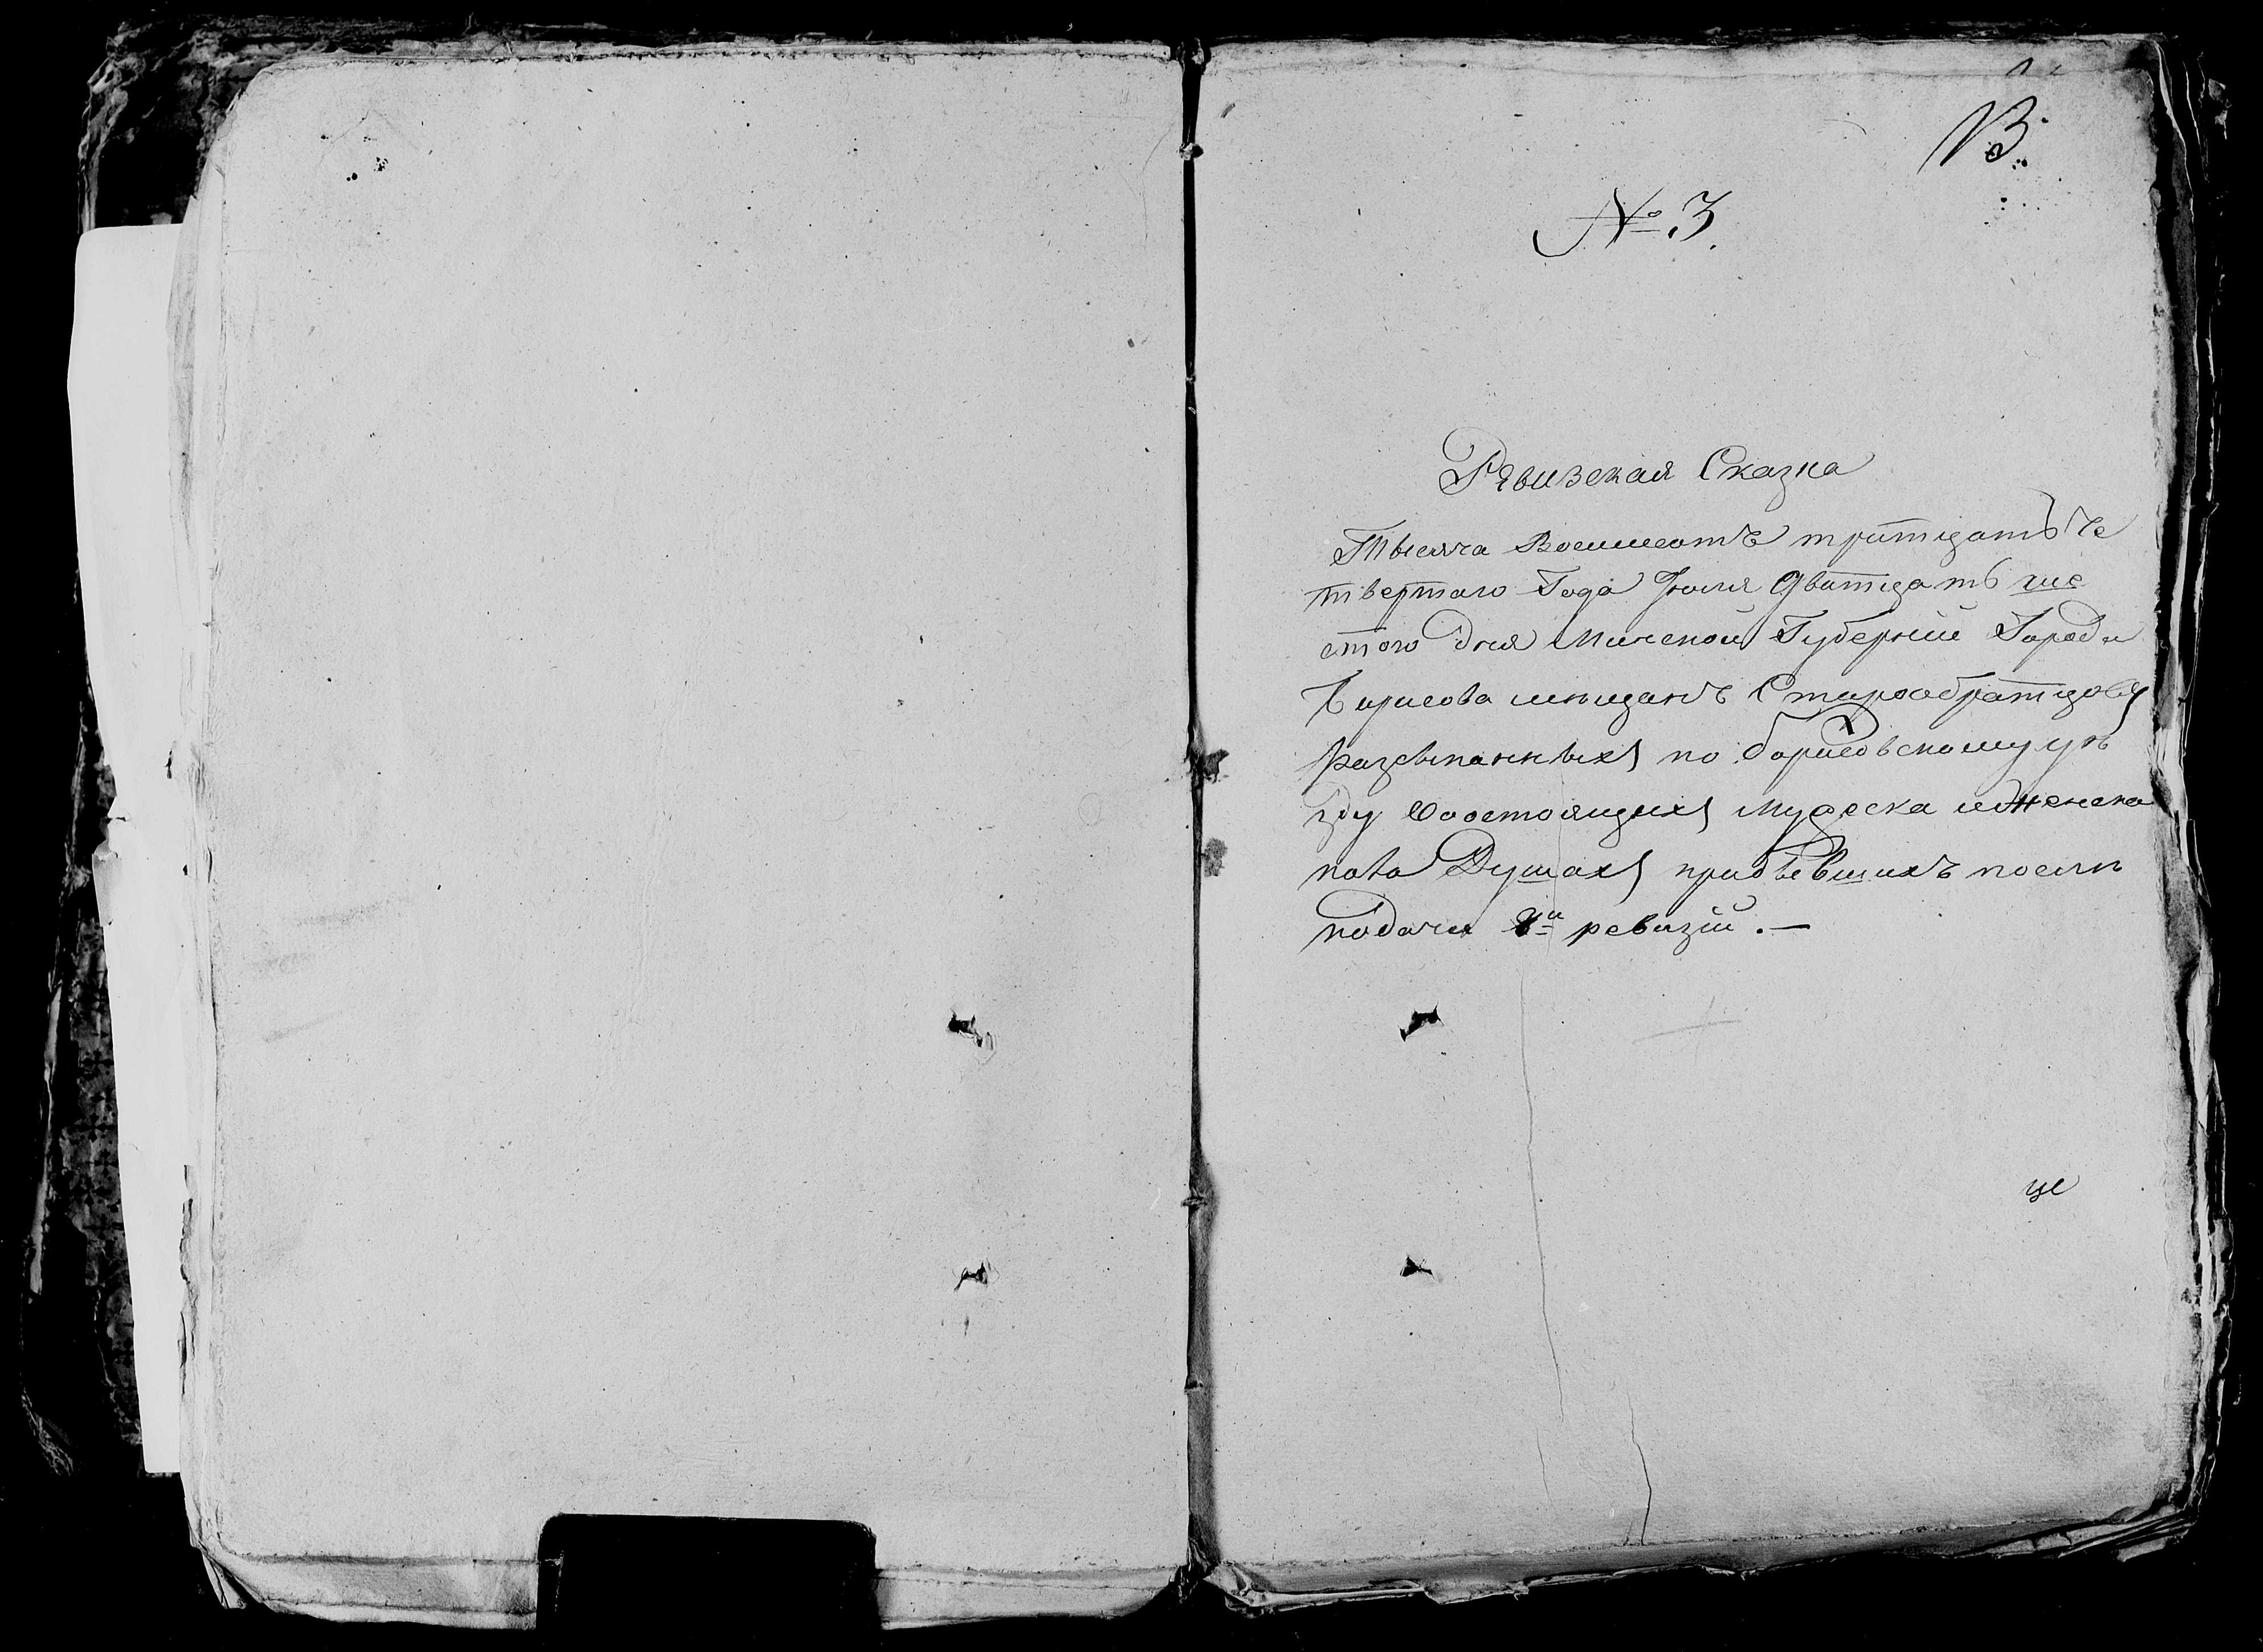 В.
№ 3.
Ревизская Сказка
Тысяча Восемсотъ тритцать че
твертаго Года Июля Дватцать шес
того дня Минской Губернии Города
Борисова мещанъ Старообратцовъ
разсыпанныхъ по борисовскому уѣ
зду Состоящихъ Мужеска и женска
пола Душахъ прибывшихъ посли
подачи 8й ревизии. —